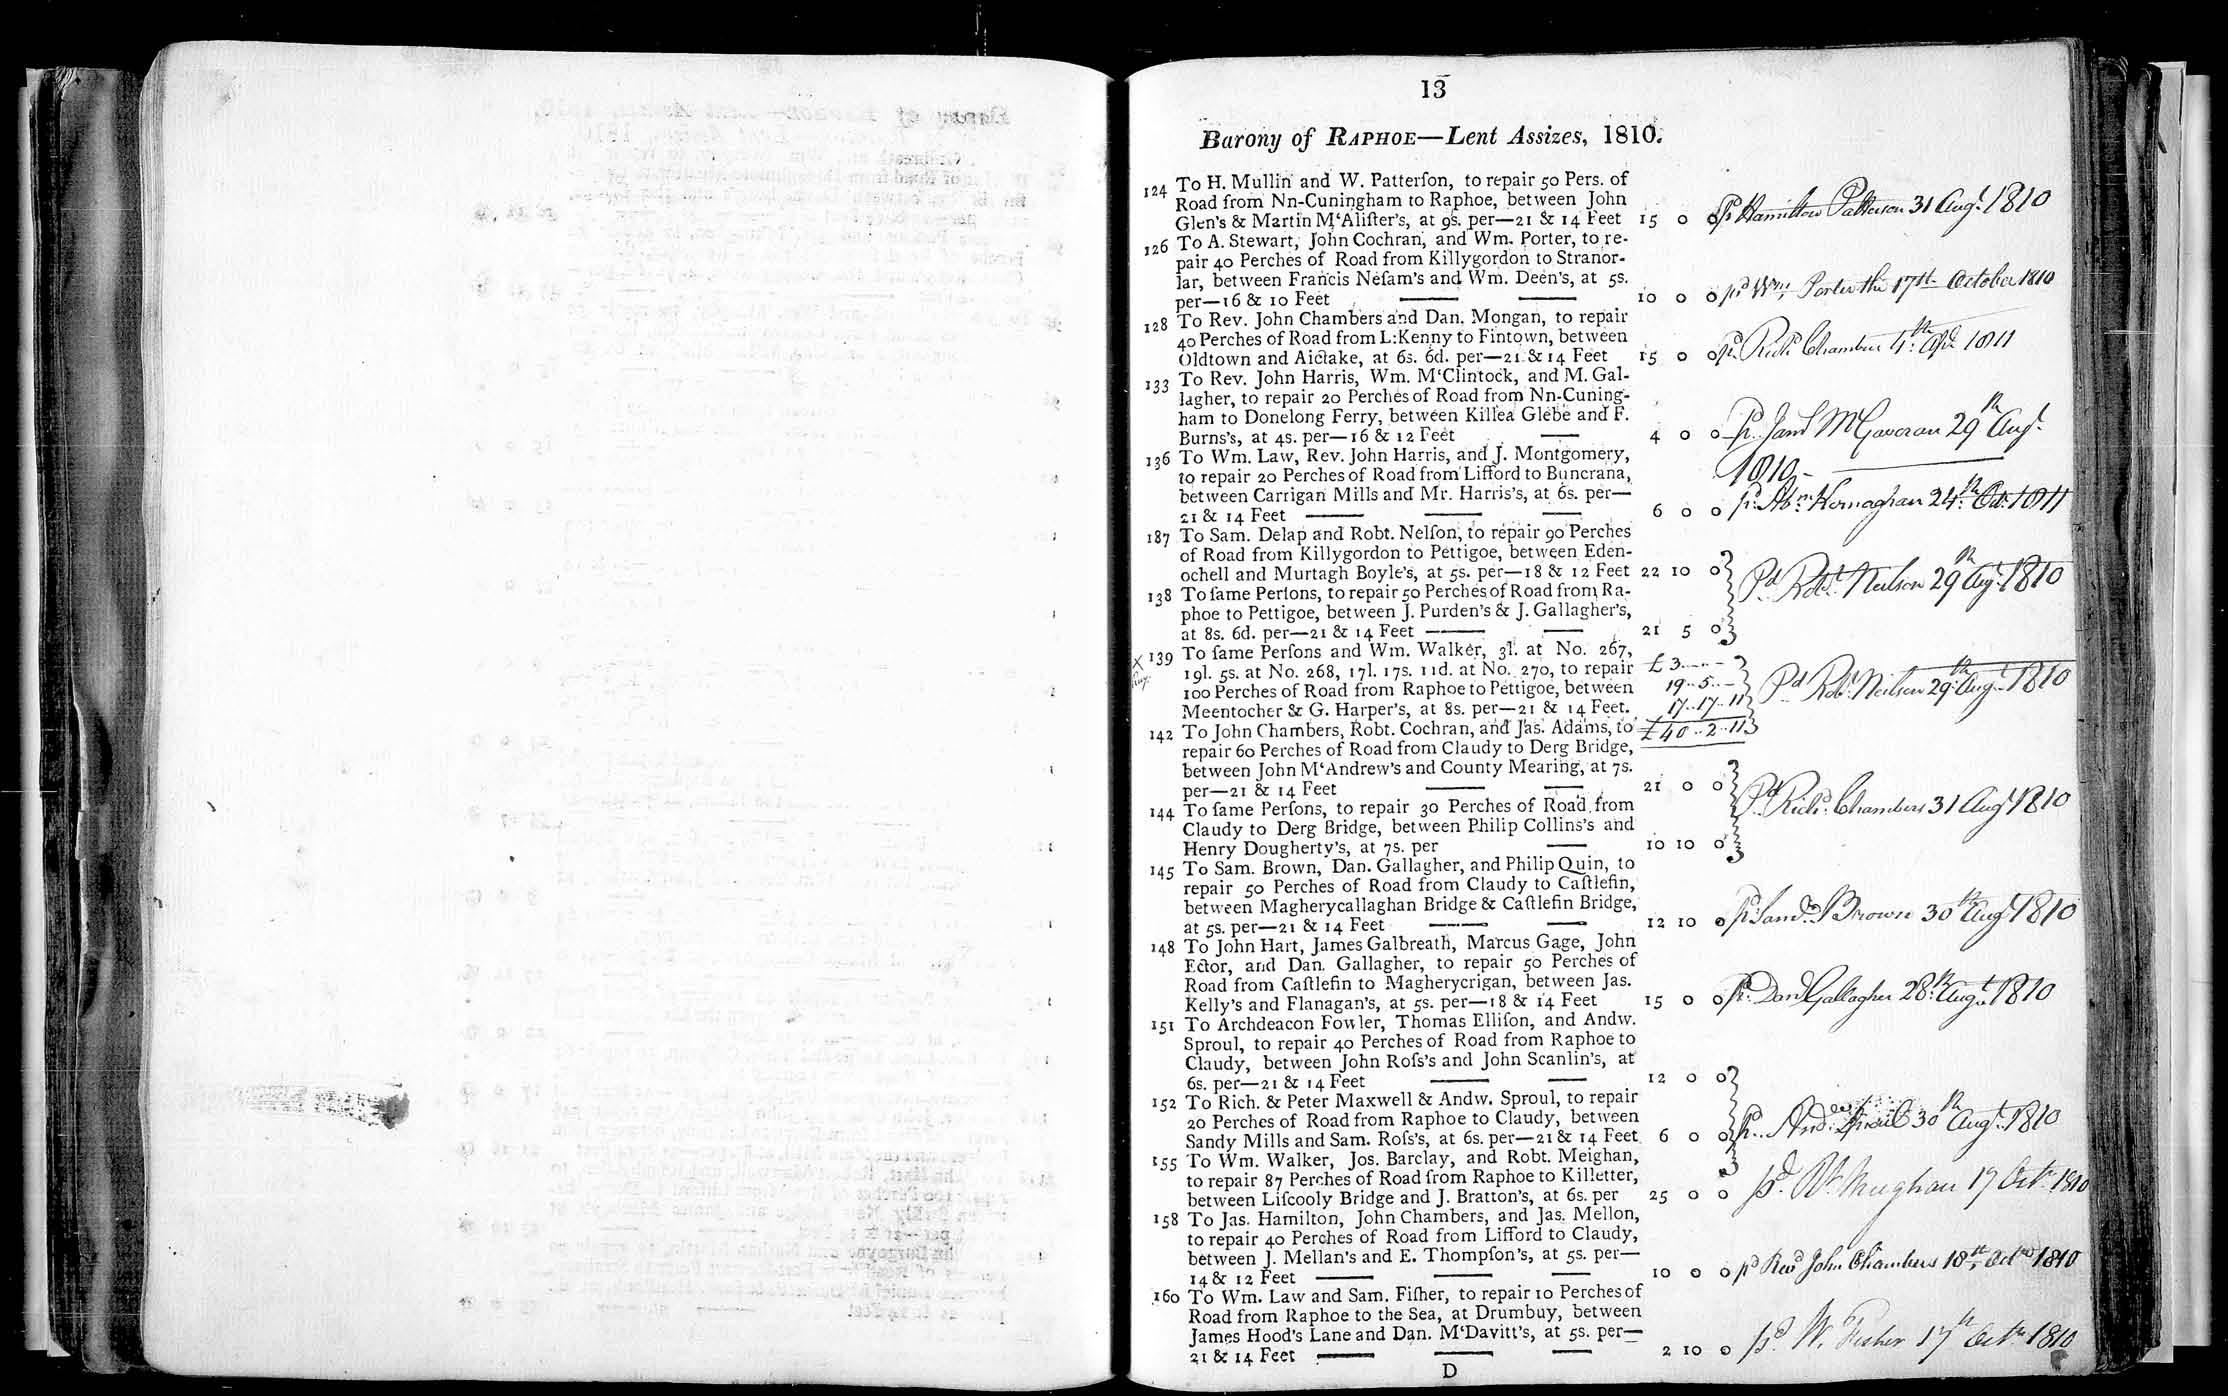 13
Barony of RAPHOE—Lent Assizes, 1810.
124 To H. Mullin and W. Patterſon, to repair 50 Pers. of
Road from Nn-Cuningham to Raphoe, between John
Glen's & Martin M'Aliſter's, at 9s. per—21 & 14 Feet 15 0 0 Pd. Hamilton Patterson 31 Augt. 1810
126 To A. Stewart, John Cochran, and Wm. Porter, to re-
pair 40 Perches of Road from Killygordon to Stranor-
lar, between Francis Neſam's and Wm. Deen's, at 5s.
per—16 & 10 Feet 10 0 0 pd Wm. Porter the 17th October 1810
128 To Rev. John Chambers and Dan. Mongan, to repair
40 Perches of Road from L:Kenny to Fintown, between
Oldtown and Aictake, at 6s. 6d. per—21 & 14 Feet 15 0 0 pd. Richd Chambers 4th. Apl. 1811
133 To Rev. John Harris, Wm. M'Clintock, and M. Gal-
lagher, to repair 20 Perches of Road from Nn-Cuning-
ham to Donelong Ferry, between Killea Glebe and F.
Burns's, at 4s. per—16 & 12 Feet 4 0 0 Pd. McGaveran 29th Augt.
1810
136 To Wm. Law, Rev. John Harris, and J. Montgomery,
to repair 20 Perches of Road from Lifford to Buncrana,
between Carrigan Mills and Mr. Harris's, at 6s. per—
21 & 14 Feet 6 0 0 pd. Abm. 24th. Oct. 1811
187 To Sam. Delap and Robt. Nelſon, to repair 90 Perches
of Road from Killygordon to Pettigoe, between Eden-
ochell and Murtagh Boyle's, at 5s. per—18 & 12 Feet 22 10 0 Pd. Robt. Neilson 29th Augt. 1810
138 To ſame Perſons, to repair 50 Perches of Road from Ra-
phoe to Pettigoe, between J. Purden's & J. Gallagher's,
at 8s. 6d. per—21 & 14 Feet 21 5 0
X 139 To ſame Perſons and Wm. Walker, 3l. at No. 267,
19l. 5s. at No. 268, 17l. 17s. 11d. at No. 270, to repair
100 Perches of Road from Raphoe to Pettigoe, between
Meentocher & G. Harper's, at 8s. per—21 & 14 Feet.
£3..-..-
19..5..-
17..17..11
£40..2..11
Pd Robt. Neilson 29th Augt. 1810
142 To John Chambers, Robt. Cochran, and Jas. Adams, to
repair 60 Perches of Road from Claudy to Derg Bridge,
between John M'Andrew's and County Mearing, at 7s.
per—21 & 14 Feet 21 0 0 Pd. Richd. Chambers 31 Augt 1810
144 To ſame Perſons, to repair 30 Perches of Road from
Claudy to Derg Bridge, between Philip Collins's and
Henry Dougherty's, at 7s. per 10 10 0
145 To Sam. Brown, Dan. Gallagher, and Philip Quin, to
repair 50 Perches of Road from Claudy to Caſtlefin,
between Magherycallaghan Bridge & Caſtlefin Bridge,
at 5s. per—21 & 14 Feet 12 10 0 Pd. Brown 30th Augt. 1810
148 To John Hart, James Galbreath, Marcus Gage, John
Ector, and Dan. Gallagher, to repair 50 Perches of
Road from Caſtlefin to Magherycrigan, between Jas.
Kelly's and Flanagan's, at 5s. per—18 & 14 Feet 15 0 0 Pd. Danl Gallagher 28th. Augt. 1810
151 To Archdeacon Fowler, Thomas Elliſon, and Andw.
Sproul, to repair 40 Perches of Road from Raphoe to
Claudy, between John Roſs's and John Scanlin's, at
6s. per—21 & 14 Feet 12 0 0
152 To Rich. & Peter Maxwell & Andw. Sproul, to repair
20 Perches of Road from Raphoe to Claudy, between
Sandy Mills and Sam. Roſs's, at 6s. per—21 & 14 Feet 6 0 0 Pd. And. Sproul 30th Augt. 1810
155 To Wm. Walker, Jos. Barclay, and Robt. Meighan,
to repair 87 Perches of Road from Raphoe to Killetter,
between Liſcooly Bridge and J. Bratton's, at 6s. per 25 0 0 pd. Rt. Meighan 17 Octr. 1810
158 To Jas. Hamilton, John Chambers, and Jas. Mellon,
to repair 40 Perches of Road from Lifford to Claudy,
between J. Mellan's and E. Thompſon's, at 5s. per—
14 & 12 Feet 10 0 0 pd Revd John Chambers 18th Octr 1810
160 To Wm. Law and Sam. Fiſher, to repair 10 Perches of
Road from Raphoe to the Sea, at Drumbuy, between
James Hood's Lane and Dan. M'Davitt's, at 5s. per—
21 & 14 Feet 2 10 0 pd. W. Fisher 17th Octr. 1810
D